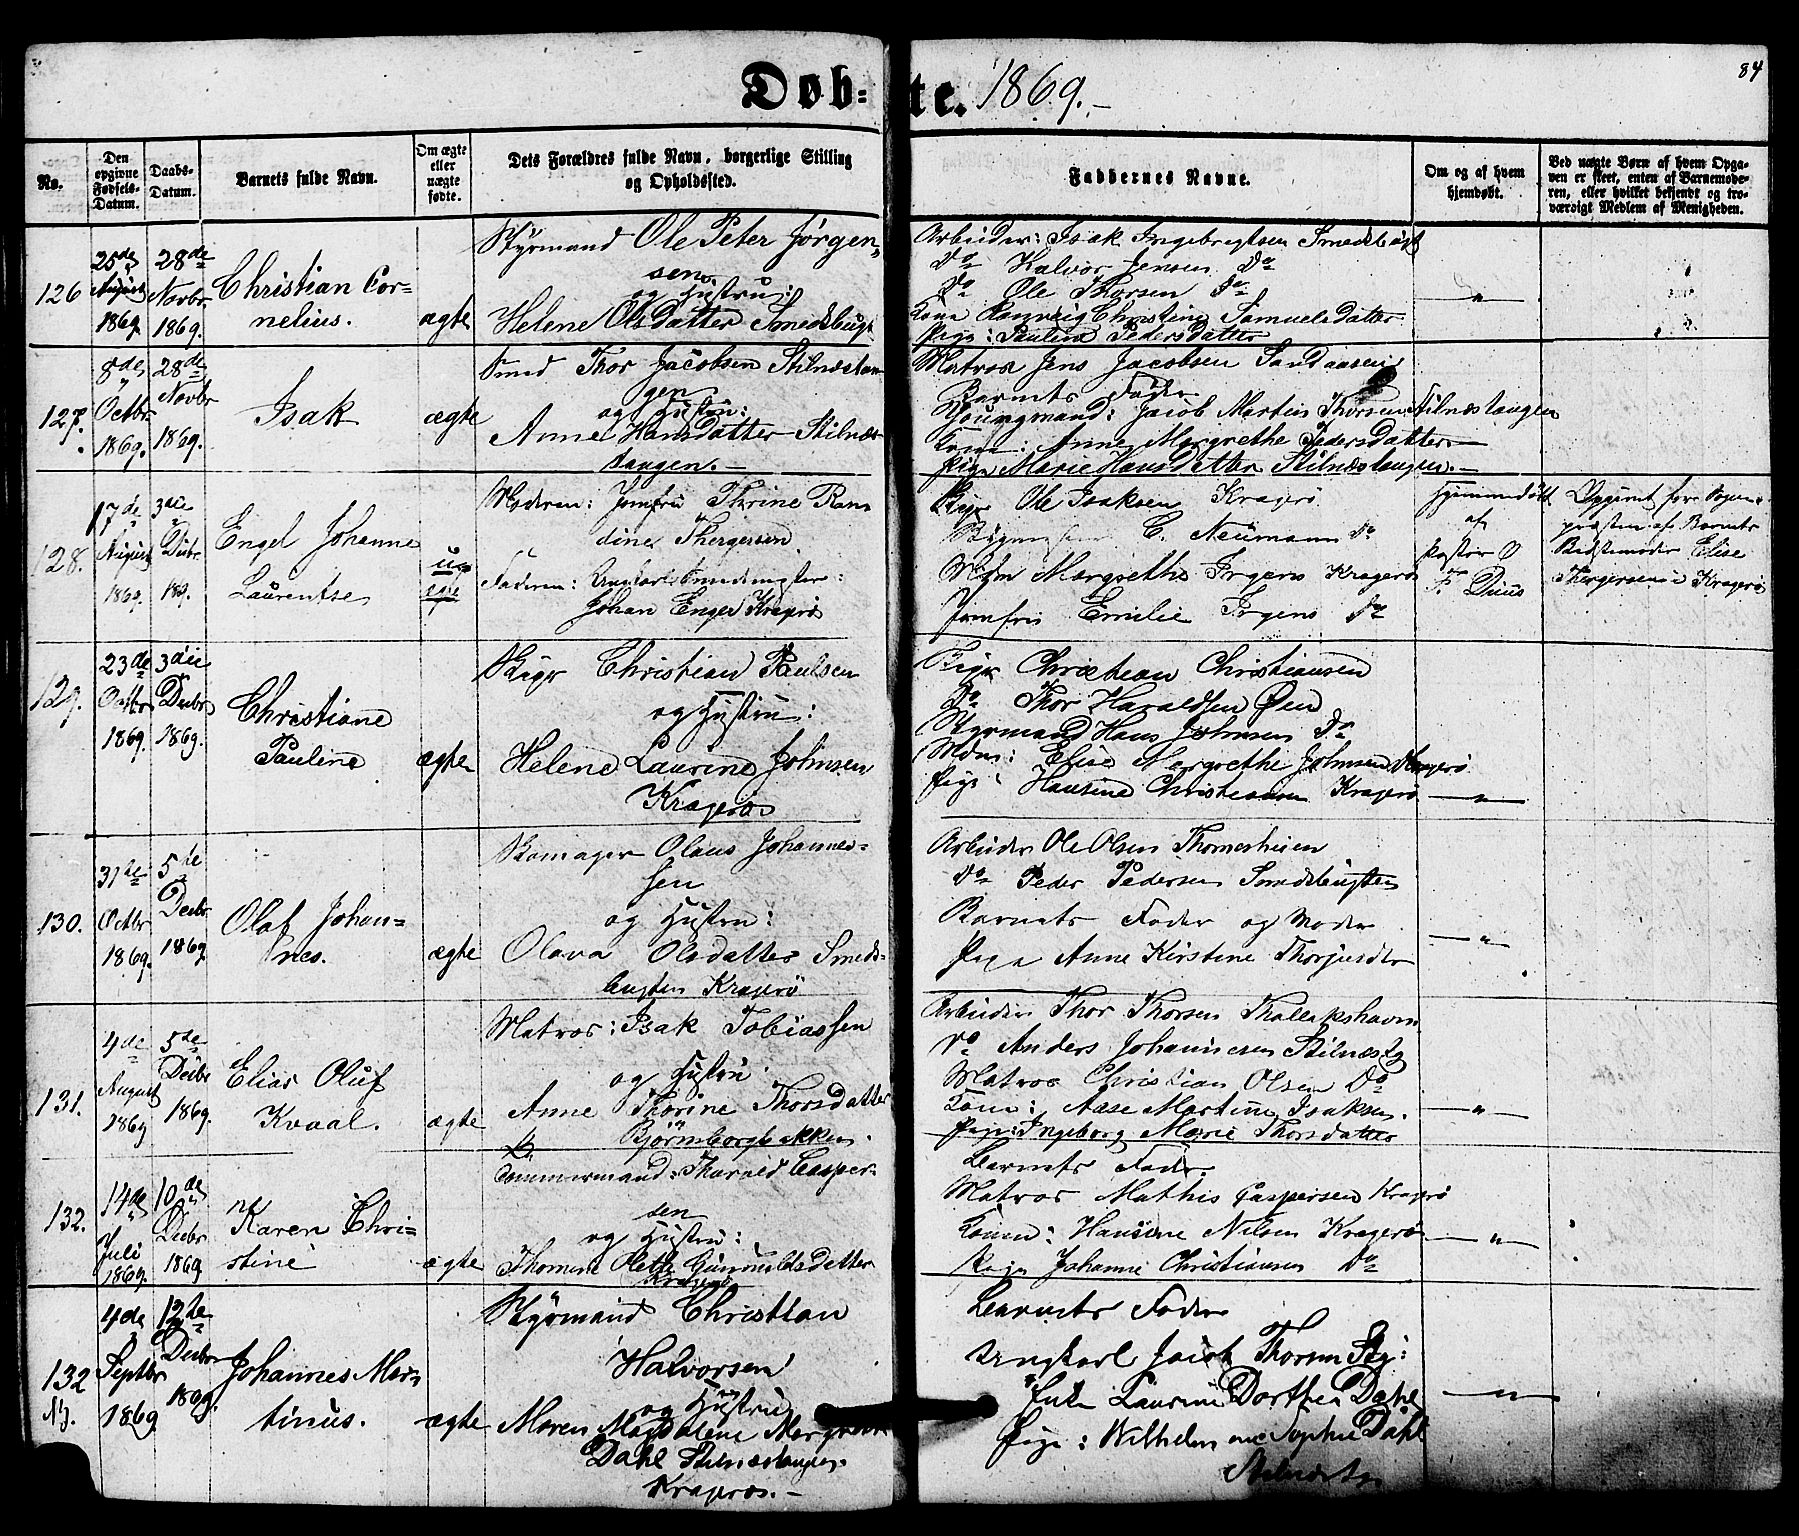 84
Døb=te. 1869.-
No.
Den opgivne Fødsels-Datum.
Daabs-Datum.
Barnets fulde Navn.
Om ægte eller uægte fødte.
Dets Forældres fulde Navn, borgerlige Stilling og Opholdssted.
Faddernes Navne.
Om og af hvem hjemdøbt.
Ved uægte Børn af hvem Opga-
ven er skeet, enten af Barnemode-
ren, eller hvilket bekjendt og tro-
værdigt Medlem af Menigheden.
126
25de August 1869.
28de Novbr 1869.
Christian Cor-
nelius.
ægte
Styrmand Ole Peter Jørgen-
sen
og Hustru:
Helene Olsdatter Smedsbugt
Arbeider: Isak Ingebrigtsen Smedsbugt
Do Halvor Jensen Do
Do Ole Thorsen Do
Kone Christine Samuelsdatter
Pige: Pauline Pedersdatter
127.
8de Octbr 1869.
28de Novbr 1869.
Isak
ægte
Smed Thor Jacobsen Stilnæstan-
gen
og Hustru:
Anne Hansdatter Stilnæs-
tangen.-
Matros Jens Jacobsen Sandaasen
Barnets Fader
Youngmand: Jacob Martin Thorsen Stilnæstangen
Kone: Anne Margrethe Pedersdatter
Pige Marie Hansdatter Stilnæstangen.-
128.
17de August 1869.
3die Decbr 1869.
Engel Johanne
Laurentse
uægte
Moderen: Jomfru Thrine Ran
dine Thergersen
Faderen: Ungkarl Smedmester:
Johan Enger Kragerø
Skipr Ole Isaksen Kragerø
C. Neumann Do
Mdm Margrethe Irgens Kragerø
Jomfru Emilie Irgens Do
Hjemmedøbt
af
Pastor
Duus
Opgivet for Sogne-
præsten af Barnets
Bedstemoder Elise
Thergersen i Kragerø
129.
23de Octbr 1869.
3die Decbr 1869.
Christiane
Pauline
ægte
Skipr Christian Paulsen
og Hustru:
Helene Laurine Johnsen
Kragerø
Skipr Christian Christiansen
Do Thor Haraldsen Øen
Styrmand Hans Johnsen Do
Mdm: Elise Margrethe Johnsen Kragerø
Pige: Hansine Christiansen Kragerø
130.
31te Octbr 1869.
5te Decbr 1869
Olaf Johan-
nes.
ægte
Skomager Olaus Johannes-
sen
og Hustru:
Olava Olsdatter Smeds-
bugten Kragerø
Arbeider Ole Olsen Thomesheien
Do Peder Pedersen Smedsbugten
Barnets Fader og Moder
Pige Anne Kirstine Thorjusdtr
131.
4de August 1869
5te Decbr 1869.
Elias Oluf
Kvaal.
ægte
Matros: Isak Tobiassen
og Hustru
Anne Thorine Thorsdatter
Bjørnsborgbakken.
Arbeider Thor Thorsen Thallakshavn
Do Anders Johannesen Stilnæstg
Matros Christian Olsen Do
Kone: Aase Martine Isaksen.
Pige: Ingeborg Marie Thorsdatter
132.
14de Juli 1869.
10de Decbr 1869
Karen Chri-
stine
ægte
Tømmermand: Tharald Casper-
sen
og Hustru:
Thomine Olette Gunnuldsdatter
Kragerø
Barnets Fader.
Matros Mathis Caspersen Kragerø
Konen: Hansine Nilsen Kragerø
Pige Johanne Christiansen Do
132
4de Septbr 1869
12te Decbr 1869.
Johannes Mar-
tinus.
ægte
Styrmand Christian
Halvorsen
og Hustru
Maren Magdalene Margrethe
Dahl Stilnæstangen
Kragerø.-
Barnets Fader
Ungkarl Jacob Thorsen
Enke Laurine Dorthea Dahl
Pige: Wilhelmine Sophie Dahl
Stilnæstg